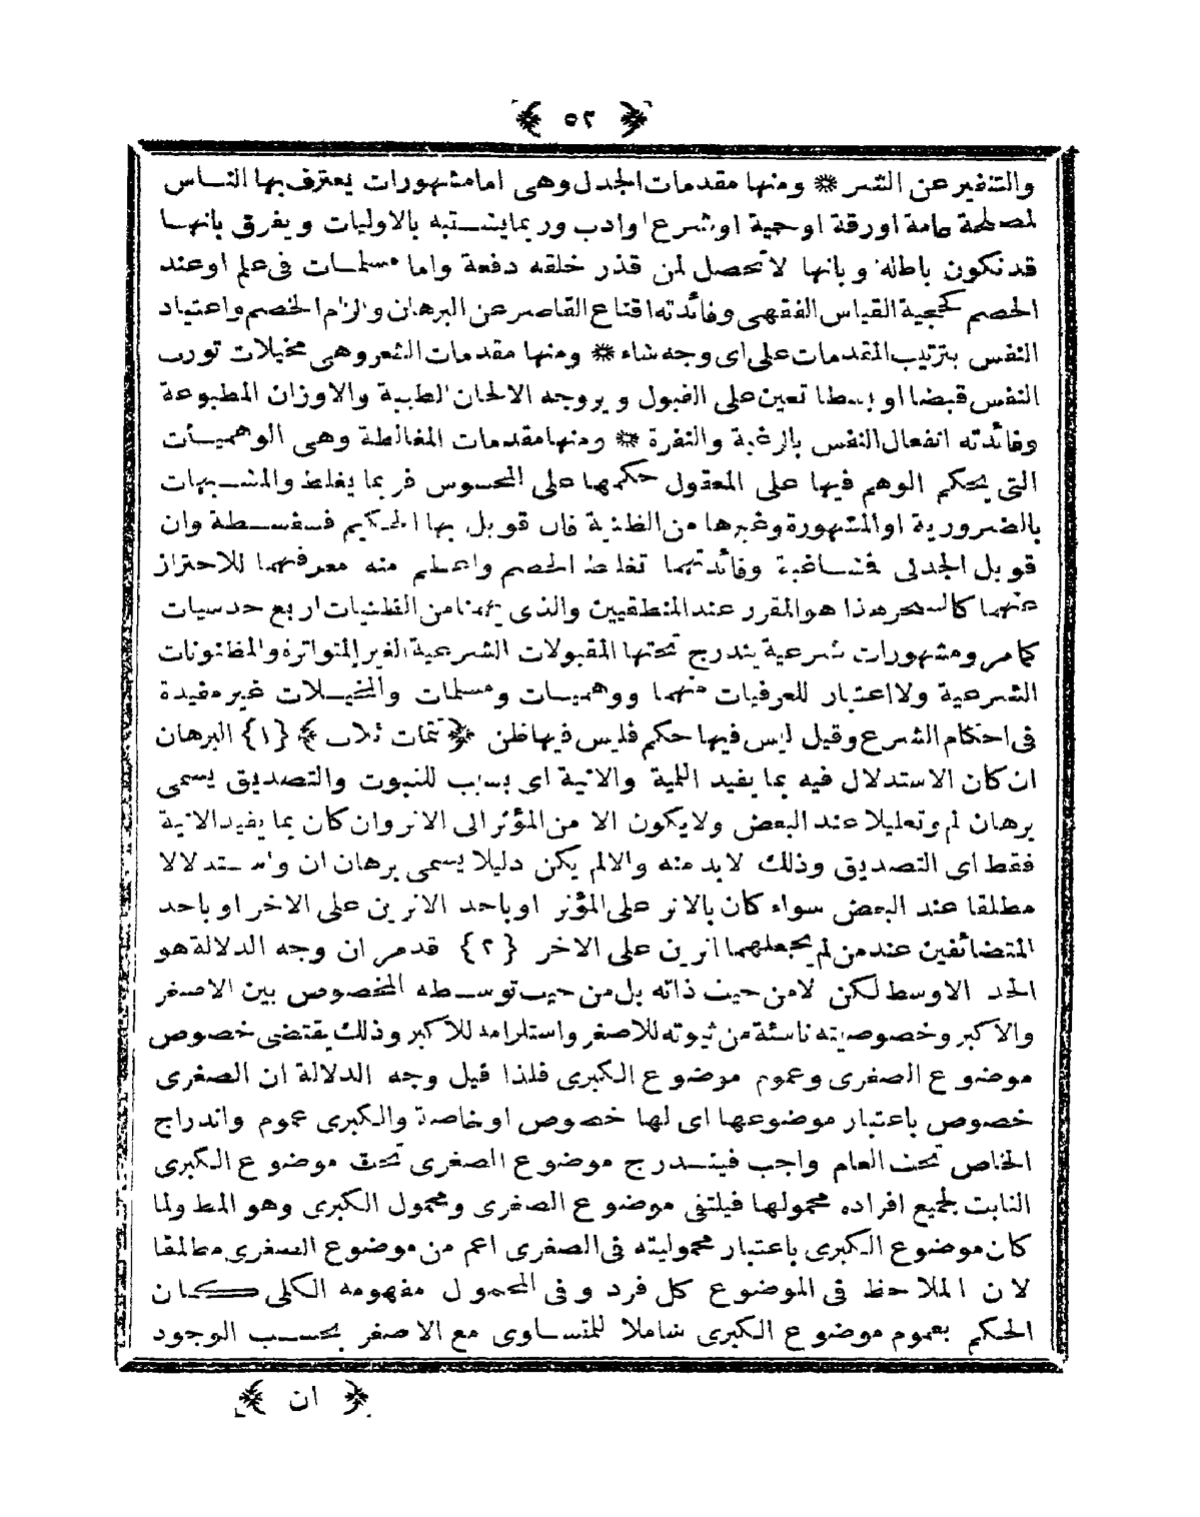 ﴿ ٢٥ ﴾
والتنفير عن الشر ۞ ومنها مقدمات الجدل وهى اما مشهورات يعترف بها الناس
لمصلحة عامة او رقة او حمية او شرع او ادب وربما يشتبه بالاوليات ويفرق بانها
قد تكون باطلة وبانها لا تحصل لمن قدر خلقه دفعة واما مسلمات فى علم او عند
الخصم كحجية القياس الفقهى وفائدته اقناع القاصر عن البرهان والزام الخصم واعتياد
النفس بترتيب المقدمات على اى وجه شاء ۞ ومنها مقدمات الشعر وهى مخيلات تورث
النفس قبضا او بسطا تعين على القبول ويروجه الالحان الطيبة والاوزان المطبوعة
وفائدته انفعال النفس بالرغبة والنفرة ۞ ومنها مقدمات المغالطة وهى الوهميات
التى يحكم الوهم فيها على المعقول حكمها على المحسوس فربما يغلط والمشبهات
بالضرورية او المشهورة وغيرها من الظنية فان قوبل بها الحكيم فسفسطة وان
قوبل الجدلى فمشاغبة وفائدتهما تغليط الخصم واعظم منه معرفتهما للاحتراز
عنهما كالسحر هذا هو المقرر عند المنطقيين والذى يهمنا من الظنيات اربع حدسيات
كما مر ومشهورات شرعية يندرج تحتها المقبولات الشرعية الغير المتواترة والمظنونات
الشرعية ولا اعتبار للعرفيات منهما ووهميات ومسلمات والمخيلات غير مفيدة
فى احكام الشرع وقيل ليس فيها حكم فليس فيها ظن ﴿ تتمات ثلاث ﴾ {١} البرهان
ان كان الاستدلال فيه بما يفيد اللمية والانية اى بسبب للثبوت والتصديق يسمى
برهان لم وتعليلا عند البعض ولا يكون الا من المؤثر الى الاثر وان كان بما يفيد الانية
فقط اى التصديق وذلك لابد منه والا لم يكن دليلا يسمى برهان ان واستدلالا
مطلقا عند البعض سواء كان بالاثر على المؤثر او باحد الاثرين على الاخر او باحد
المتضائفين عند من لم يجعلهما اثرين على الاخر {٢} قد مر ان وجه الدلالة هو
الحد الاوسط لكن لا من حيث ذاته بل من حيث توسطه المخصوص بين الاصغر
والاكبر وخصوصيته ناشئة من ثبوته للاصغر واستلزامه للاكبر وذلك يقتضى خصوص
موضوع الصغرى وعموم موضوع الكبرى فلذا قيل وجه الدلالة ان الصغرى
خصوص باعتبار موضوعها اى لها خصوص او خاصة والكبرى عموم واندراج
الخاص تحت العام واجب فيندرج موضوع الصغرى تحت موضوع الكبرى
الثابت لجميع افراده محمولها فيلتقى موضوع الصغرى ومحمول الكبرى وهو المط ولما
كان موضوع الكبرى باعتبار محموليته فى الصغرى اعم من موضوع الصغرى مطلقا
لان الملاحظ فى الموضوع كل فرد وفى المحمول مفهومه الكلى كان
الحكم بعموم موضوع الكبرى شاملا للمتساوى مع الاصغر بحسب الوجود
﴿ ان ﴾